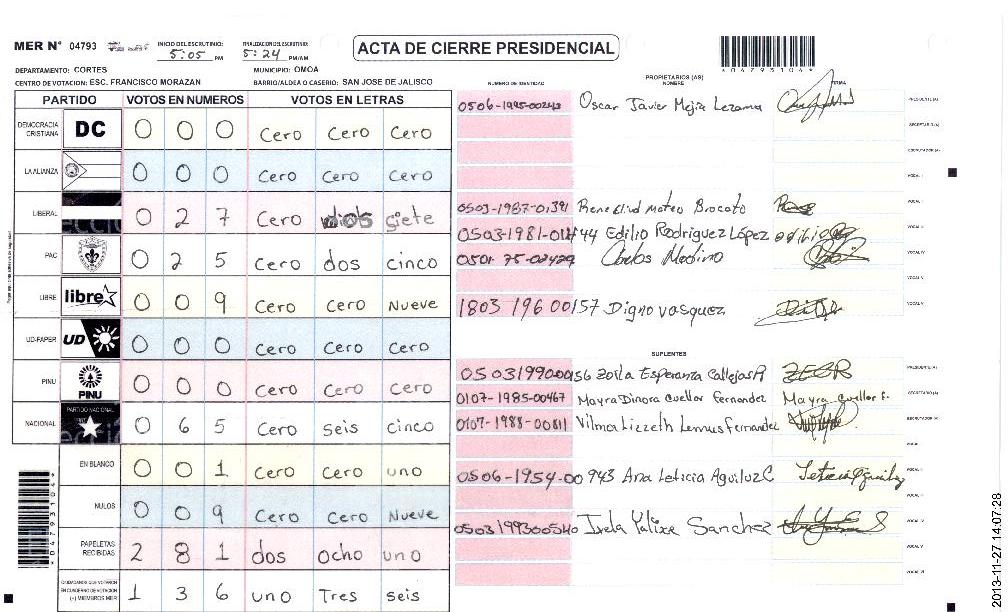 MER N° 04793 INICIO DEL ESCRUTINIO: 5:05 PM FINALIZACION DEL ESCRUTINIO: 5:24 PM/AM ACTA DE CIERRE PRESIDENCIAL
DEPARTAMENTO: CORTES MUNICIPIO: OMOA
CENTRO DE VOTACION: ESC. FRANCISCO MORAZAN BARRIO/ALDEA O CASERIO: SAN JOSE DE JALISCO
*04793104*
PARTIDO VOTOS EN NUMEROS VOTOS EN LETRAS
DEMOCRACIA CRISTIANA DC 0 0 0 Cero Cero Cero
LA ALIANZA 0 0 0 Cero Cero Cero
LIBERAL 0 2 7 Cero dos siete
PAC 0 2 5 Cero dos cinco
LIBRE libre 0 0 9 Cero Cero Nueve
UD-FAPER UD 0 0 0 Cero Cero Cero
PINU PINU 0 0 0 Cero Cero Cero
NACIONAL PARTIDO NACIONAL 0 6 5 Cero seis cinco
EN BLANCO 0 0 1 Cero Cero uno
NULOS 0 0 9 Cero Cero Nueve
PAPELETAS RECIBIDAS 2 8 1 dos ocho uno
CIUDADANOS QUE VOTARON EN CUADERNO DE VOTACION (+) MIEMBROS MER 1 3 6 uno Tres seis
NUMERO DE IDENTIDAD PROPIETARIOS (AS) FIRMA
Oscar Javier Mejia Lezama PRESIDENTE (A)
SECRETARIO (A)
ESCRUTADOR (A)
VOCAL I
Mateo Brocato VOCAL II
Edilio Rodriguez López edilio VOCAL III
Carlos Medina VOCAL IV
VOCAL V
Digno vasquez
SUPLENTES
Zoila Esperanza Callejas R PRESIDENTE (A)
0107-1985-00467 Mayra Dinora Cuellar Fernandez Mayra Cuellar F. SECRETARIO (A)
0107-1988-00811 Vilma Lizzeth Lemus Fernandez ESCRUTADOR (A)
VOCAL I
0506-1954-00943 Ana Leticia Aguiluz C Leticia Aguiluz
Sanchez VOCAL IV
VOCAL V
VOCAL VI
2013-11-27 14:07:28